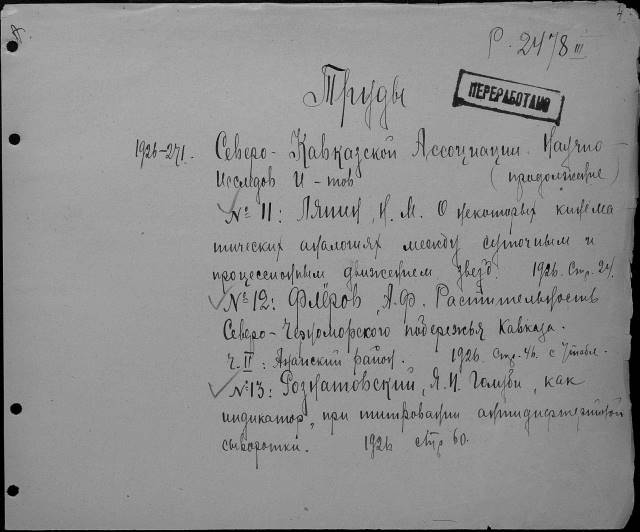 4
Р. 2478 III
Труды
ПЕРЕРАБОТАНО
1926-27г. Северо-Кавказской Ассоциации Научно-
Исследов И-тов (продолжение)
№ 11: Лятин, Н. М. О некоторых кинема
тических аналогиях между суточным и
процессионным движением звезд. 1926. Стр. 24.
№ 12: Флёров, А. Ф. Растительность
Северо-Черноморского побережья Кавказа.
Ч. II: Анапский район. 1926. Стр. 46. с
№ 13: Рознатовский, Я. И. Голуби, как
индикатор, при титровании антидифтерийной
сыворотки. 1926 стр 60.